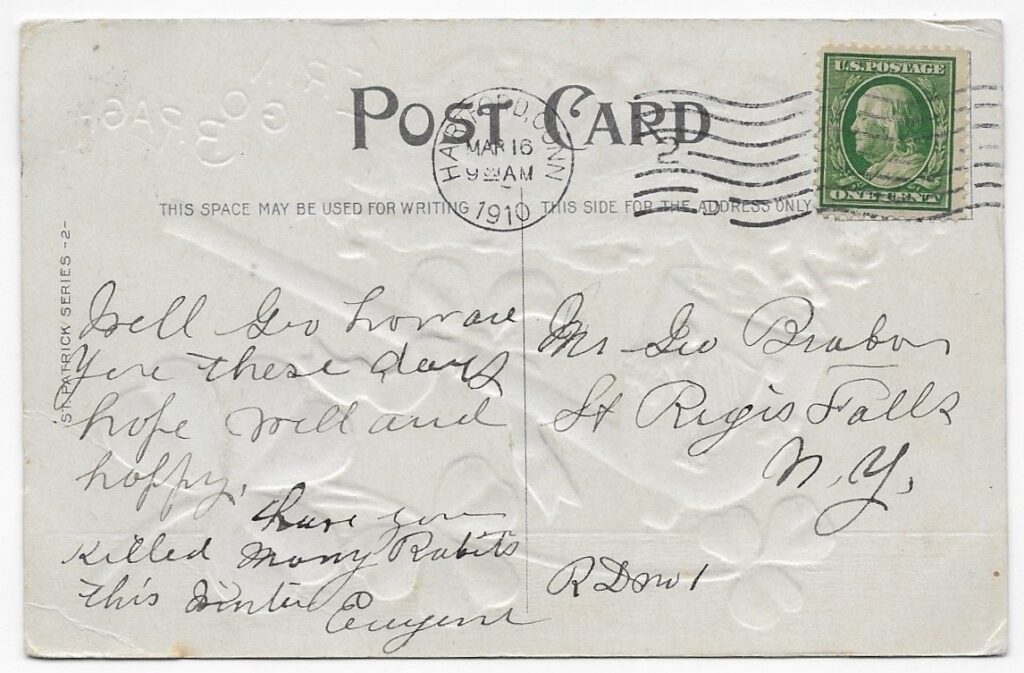 POST CARD
HARTFORD, CONN
MAR 16
9 AM
1910
2
D
U.S. POSTAGE
ONE CENT
THIS SPACE MAY BE USED FOR WRITING
THIS SIDE FOR THE ADDRESS ONLY
ST. PATRICK SERIES -2-
Well Geo how are
You these days
hope well and
happy.
have you
killed Many Rabits
this winter
Eugene
Mr Geo Brabon
St Regis Falls
N.Y.
R D no 1